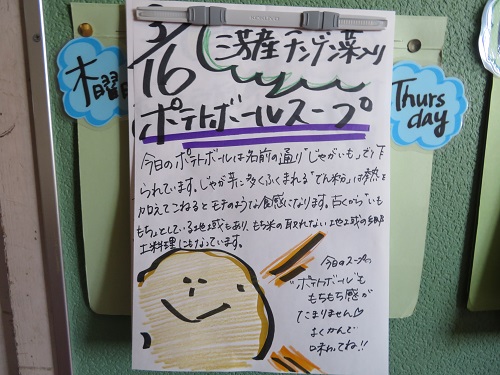 3/16
(三芳産チンゲン菜入り)
ポテトボールスープ
木曜日
Thurs
day
今日のポテトボールは名前の通り"じゃがいも"で作
られています。じゃが芋に多くふくまれる"でん粉"は熱を
加えてこねるとモチのような食感になります。古くから"いも
もち"としている地域もあり、もち米の取れない地域の郷
土料理にもなっています。
今日のスープの
"ポテトボール"も
もちもち感が
たまりません♡
よくかんで
味わってね!!